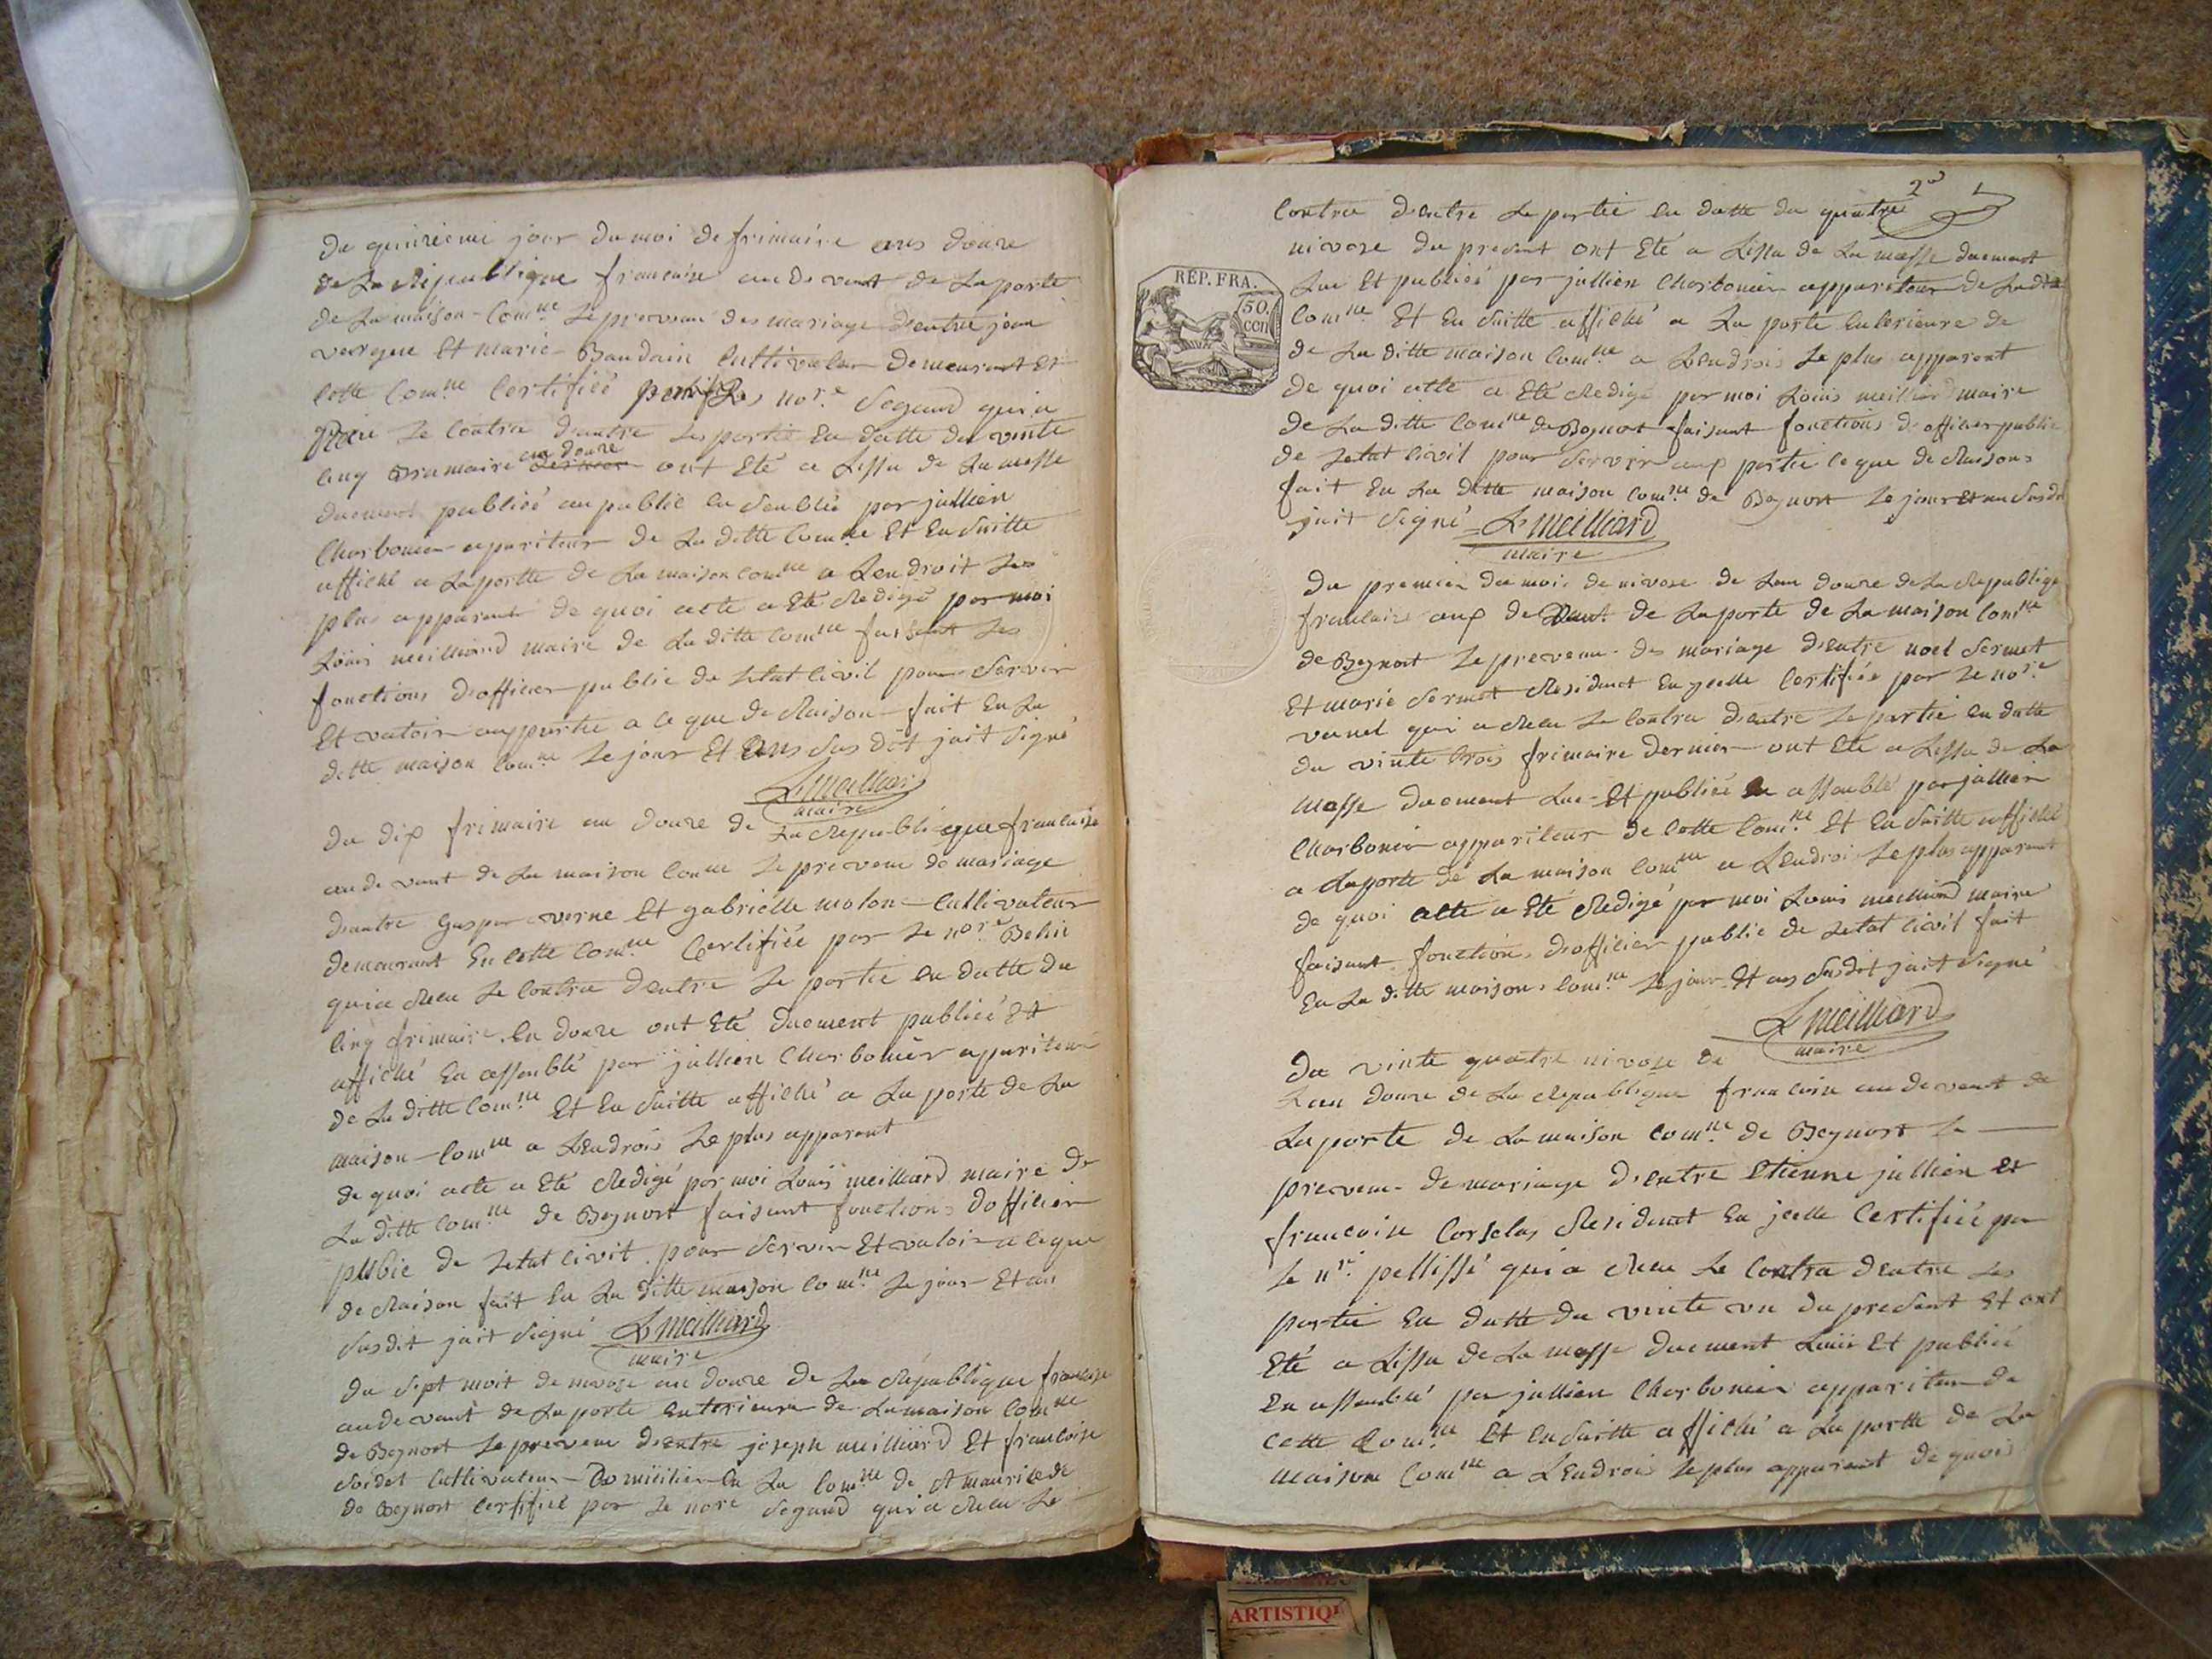 du quinzieme jour du moi de frimaire ans douze
de La Republique francaise au de vant de La porte
de La maison Com.ne Le prevenu des mariage d'entre jean
vergne Et marie Baudain Cultivateur demeurant Et
Cette Com.ne Certifiée par Le nore Segaud qui a
Recu Le Contra d'entre Les partie En datte du vinte
Cinq Brumaire an douze ont Eté a Lissu de La messe
duement publiéé au public En semblée par jullien
Charbonier apariteur de La ditte Comne Et En suitte
affiché a La portte de La maison Comne a Lendroit Les
plus apparant de quoi acte a Eté Redigé par moi
Loüis meilliard maire de La ditte Comne faisant Les
fonctions d'officier public de Letat Civil pour Servir
Et valoir au partie a Ce que de Raison fait En La
ditte maison Comne Le jour Et Ans Sus dit jait Signé
L meilliard
maire
du dix frimaire an douze de La Republique francaise
au de vant de La maison Comne Le prevenu de mariage
d'entre Gaspar verne Et gabrielle molon Cultivateur
demeurant En Cette Com.ne Certifiée par Le nore
qui a Recu Le Contra d'entre Le partie En datte du
Cinq frimaire En douze ont Eté duement publiéé Et
affiché En assemblé par jullien Charbonier apariteur
de La ditte Com.ne Et En suitte affiché a La porte de La
maison Comne a LEndrois Le plus apparant
de quoi acte a Eté Redigé par moi Louis meilliard maire de
La ditte Com.ne de Boynost faisant fonctions d'officier
public de Letat Civil pour Servir Et valoir a Ce que
de Raison fait En La ditte maison Com.ne Le jour Et an
Susdit jait Signé L meilliard
maire
du Sept moit de nivoze an douze de La Republique francaise
au de vant de La porte Enterieure de La maison Comne
de Boynost Le prevenu d'entre joseph meilliard Et francoise
Cultivateur En La Com.ne de St maurice de
de Boynost Certifiée par Le nore Segaud qui a Recu Le
2e
Contra d'entre Le partie En datte du quatre
nivoze du present ont Eté a Lissu de La messe duement
Lue Et publiéé par jullien Charbonier appariteur de La dte
Comne Et En Suitte affiché a La porte Enterieure de
de La ditte maison Comne a LEndrois Le plus apparent
de quoi acte a Eté Redigé par moi Loüis meilliard maire
de La ditte Comne de Boynost faisant fonctions d'officier public
de Letat Civil pour Servir aux partie Ce que de Raisons
fait En La ditte maison Com.ne de Boynost Le jour Et an Susdit
jait Signé L meilliard
maire
REP. FRA.
50.
cen
du premier du mois de nivoze de Lan douze de La Republique
francaise aux devant de La porte de La maison Comne
de Boynost Le prevenu des mariage d'entre noel Sermet
Et marie Sermet Residant En ycelle Certifiée par Le nore
vanel qui a Recu Le Contra d'entre Le partie En datte
du vinte trois frimaire dernier ont Eté a Lissu de La
messe duement Lue Et publiéé En assemblé par jullien
Charbonier appariteur de Cette Com.ne Et En Suitte affiché
a La porte de La maison Comne a LEndrois Le plus apparant
de quoi acte a Eté Redigé par moi Louis meilliard maire
faisant fonctions d'officier public de Letat Civil fait
En La ditte maisons Com.ne Le jour Et ans Susdit jait Signé
L meilliard
maire
du vinte quatre nivoze de
Lan douze de La Republique francaise au de vant de
La porte de La maison Com.ne de Boynost Le
prevenu de mariage d'entre Etienne jullien Et
francoise Corselas Resident En jcelle Certifiée par
Le nre pellissé qui a Recu Le Contra dentre Les
partie En datte du vinte un du present Et ont
Eté a Lissu de La messe duement Luü Et publiéé
En assemblé par jullien Charbonier appariteur de
Cette Com.ne Et En Suitte affiché a La portte de La
maison Comne a LEndrois Le plus apparant de quoi
ARTISTIQ